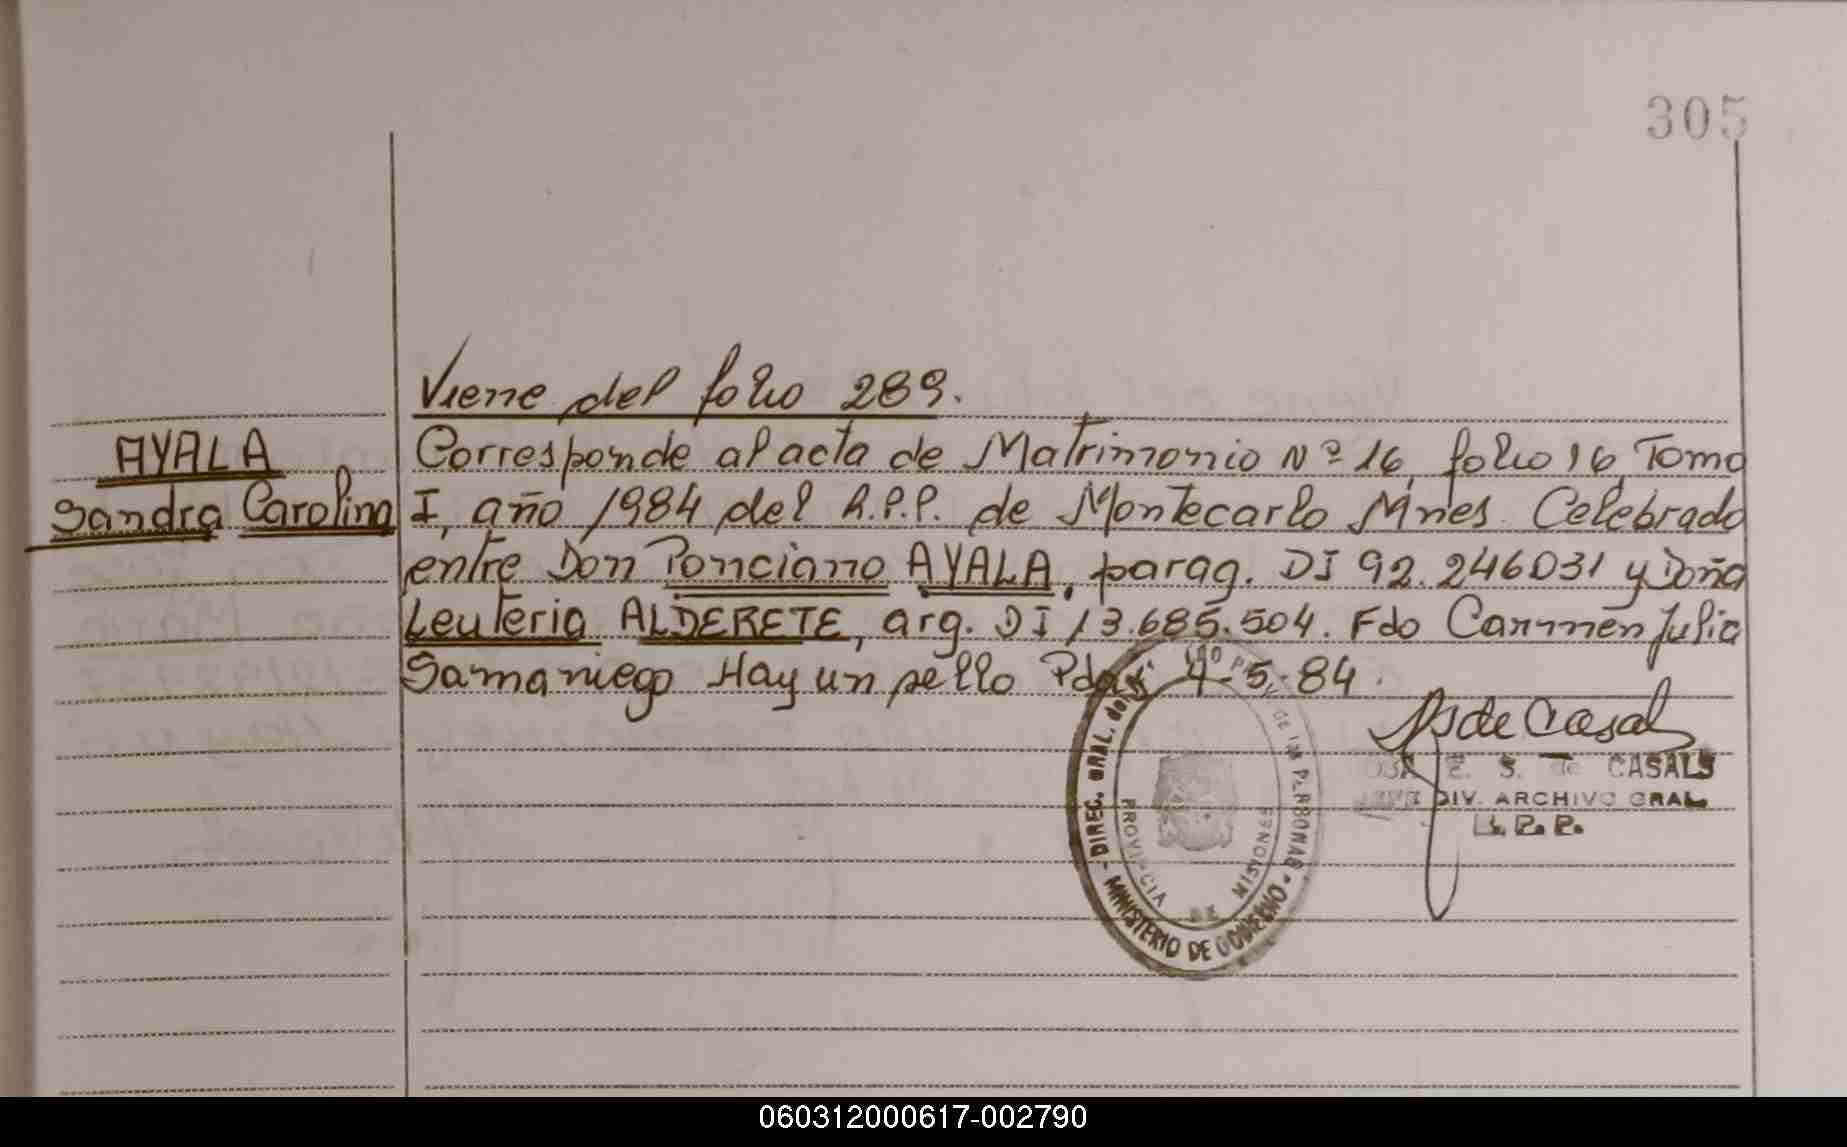 305
Viene del folio 289.
AYALA
Sandra Carolina
Corresponde al acta de Matrimonio Nº 16, folio 16, Tomo
I, año 1984 del R.P.P. de Montecarlo Mnes. Celebrado
entre Don Ponciano AYALA, parag. DI 92.246031 y Doña
Leuteria ALDERETE, arg. DI 13.685.504. Fdo Carmen Julia
Samaniego Hay un sello Pdas. 4-5-84.
de Casals
E. S. de CASALS
JEFE DIV. ARCHIVO GRAL
R. P. P.
DIREC. GRAL. del DE las PERSONAS
MINISTERIO DE GOBIERNO
PROVINCIA DE MISIONES
060312000617-002790